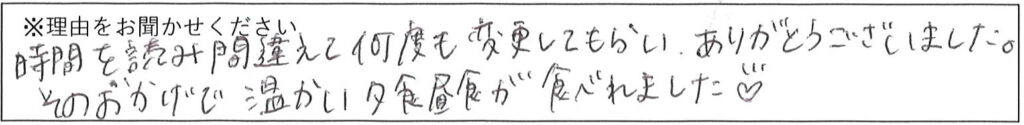 ※理由をお聞かせください
時間を読み間違えて何度も変更してもらい、ありがとうございました。
そのおかげで温かい夕食昼食が食べれました♡